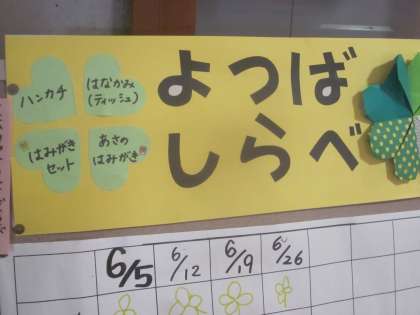 ハンカチ
はなかみ
(ティッシュ)
はみがき
セット
あさの
はみがき
よつば
しらべ
6/5
6/12
6/19
6/26